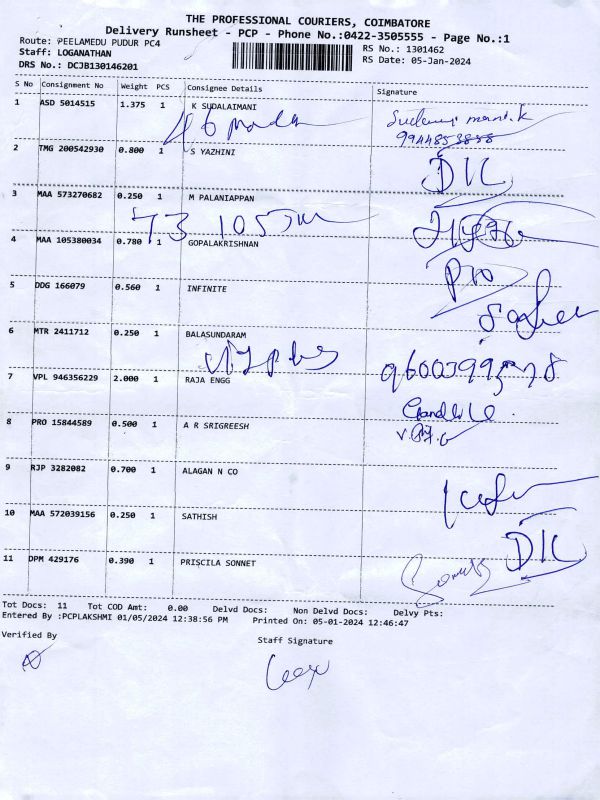 THE PROFESSIONAL COURIERS, COIMBATORE
Delivery Runsheet - PCP - Phone No.:0422-3505555 - Page No.:1
Route: PEELAMEDU PUDUR PC4
RS No.: 1301462
Staff: LOGANATHAN
RS Date: 05-Jan-2024
DRS No.: DCJB130146201
S No Consignment No Weight PCS Consignee Details Signature
1 ASD 5014515 1.375 1 K SUDALAIMANI
9944853888
2 TMG 200542930 0.800 1 S YAZHINI
DIC
3 MAA 573270682 0.250 1 M PALANIAPPAN
4 MAA 105380034 0.780 1 GOPALAKRISHNAN
Pro
5 DDG 166079 0.560 1 INFINITE
6 MTR 2411712 0.250 1 BALASUNDARAM
7 VPL 946356229 2.000 1 RAJA ENGG
8 PRO 15844589 0.500 1 A R SRIGREESH
9 RJP 3282082 0.700 1 ALAGAN N CO
10 MAA 572039156 0.250 1 SATHISH
DIC
11 DPM 429176 0.390 1 PRISCILA SONNET
Tot Docs: 11 Tot COD Amt: 0.00 Delvd Docs: Non Delvd Docs: Delvy Pts:
Entered By :PCPLAKSHMI 01/05/2024 12:38:56 PM Printed On: 05-01-2024 12:46:47
Verified By
Staff Signature